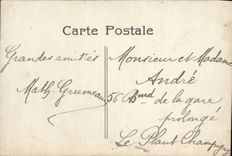 Carte Postale
Grandes amitiés
Math. Grumeau
Monsieur et Madame
André
56 Bund de la gare
prolongé
Le Plant Champigny